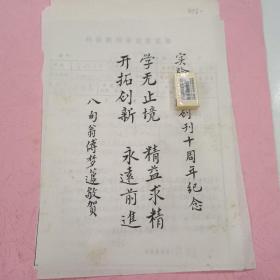 实验 创刊十周年纪念
学无止境 精益求精
开拓创新 永远前進
八旬翁傅梦蘧敬贺